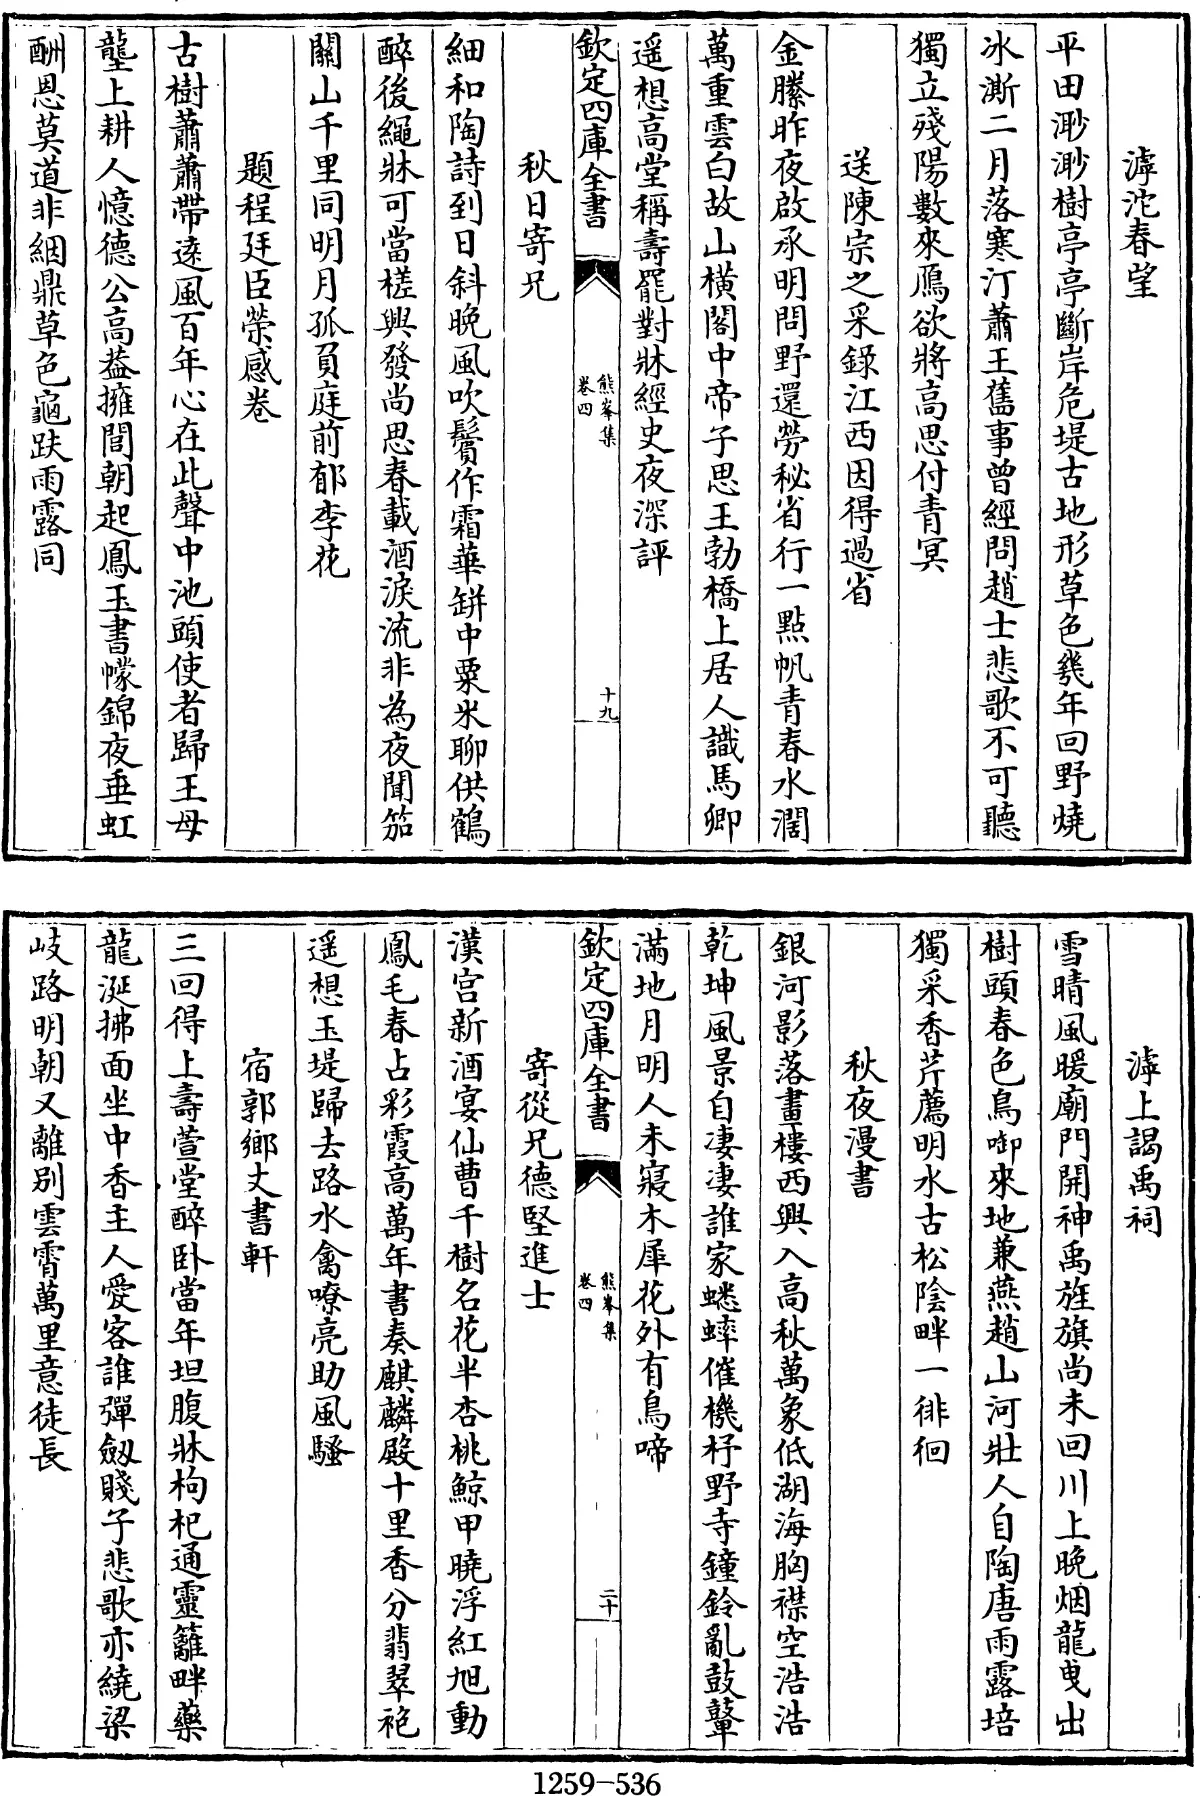 滹沱春望
平田渺渺樹亭亭斷岸危堤古地形草色幾年回野燒
冰澌二月落寒汀蕭王舊事曾經問趙士悲歌不可聽
獨立殘陽數來鴈欲將高思付青冥
送陳宗之采錄江西因得過省
金縢昨夜啟承明問野還勞秘省行一點帆青春水濶
萬重雲白故山橫閣中帝子思王勃橋上居人識馬卿
遥想高堂稱壽罷對牀經史夜深評
欽定四庫全書
熊峯集
卷四
十九
秋日寄兄
細和陶詩到日斜晚風吹鬢作霜華缾中粟米聊供鶴
醉後繩牀可當槎興發尚思春載酒淚流非為夜聞笳
關山千里同明月孤負庭前郁李花
題程廷臣榮感卷
古樹蕭蕭帶遠風百年心在此聲中池頭使者歸王母
壟上耕人憶德公高葢擁閭朝起鳳玉書幪錦夜垂虹
酬恩莫道非絪鼎草色龜趺雨露同
滹上謁禹祠
雪晴風暖廟門開神禹旌旗尚未回川上晚烟龍曵出
樹頭春色鳥啣來地兼燕趙山河壯人自陶唐雨露培
獨采香芹薦明水古松陰畔一徘徊
秋夜漫書
銀河影落畫樓西興入高秋萬象低湖海胸襟空浩浩
乾坤風景自凄凄誰家蟋蟀催機杼野寺鐘鈴亂鼓鼙
滿地月明人未寢木犀花外有鳥啼
欽定四庫全書
熊峯集
卷四
二十
寄從兄德堅進士
漢宫新酒宴仙曹千樹名花半杏桃鯨甲曉浮紅旭動
鳳毛春占彩霞高萬年書奏麒麟殿十里香分翡翠袍
遥想玉堤歸去路水禽嘹亮助風騷
宿郭鄉丈書軒
三回得上壽萱堂醉卧當年坦腹牀枸杞通靈籬畔藥
龍涎拂面坐中香主人愛客誰彈劔賤子悲歌亦繞梁
岐路明朝又離别雲霄萬里意徒長
1259-536